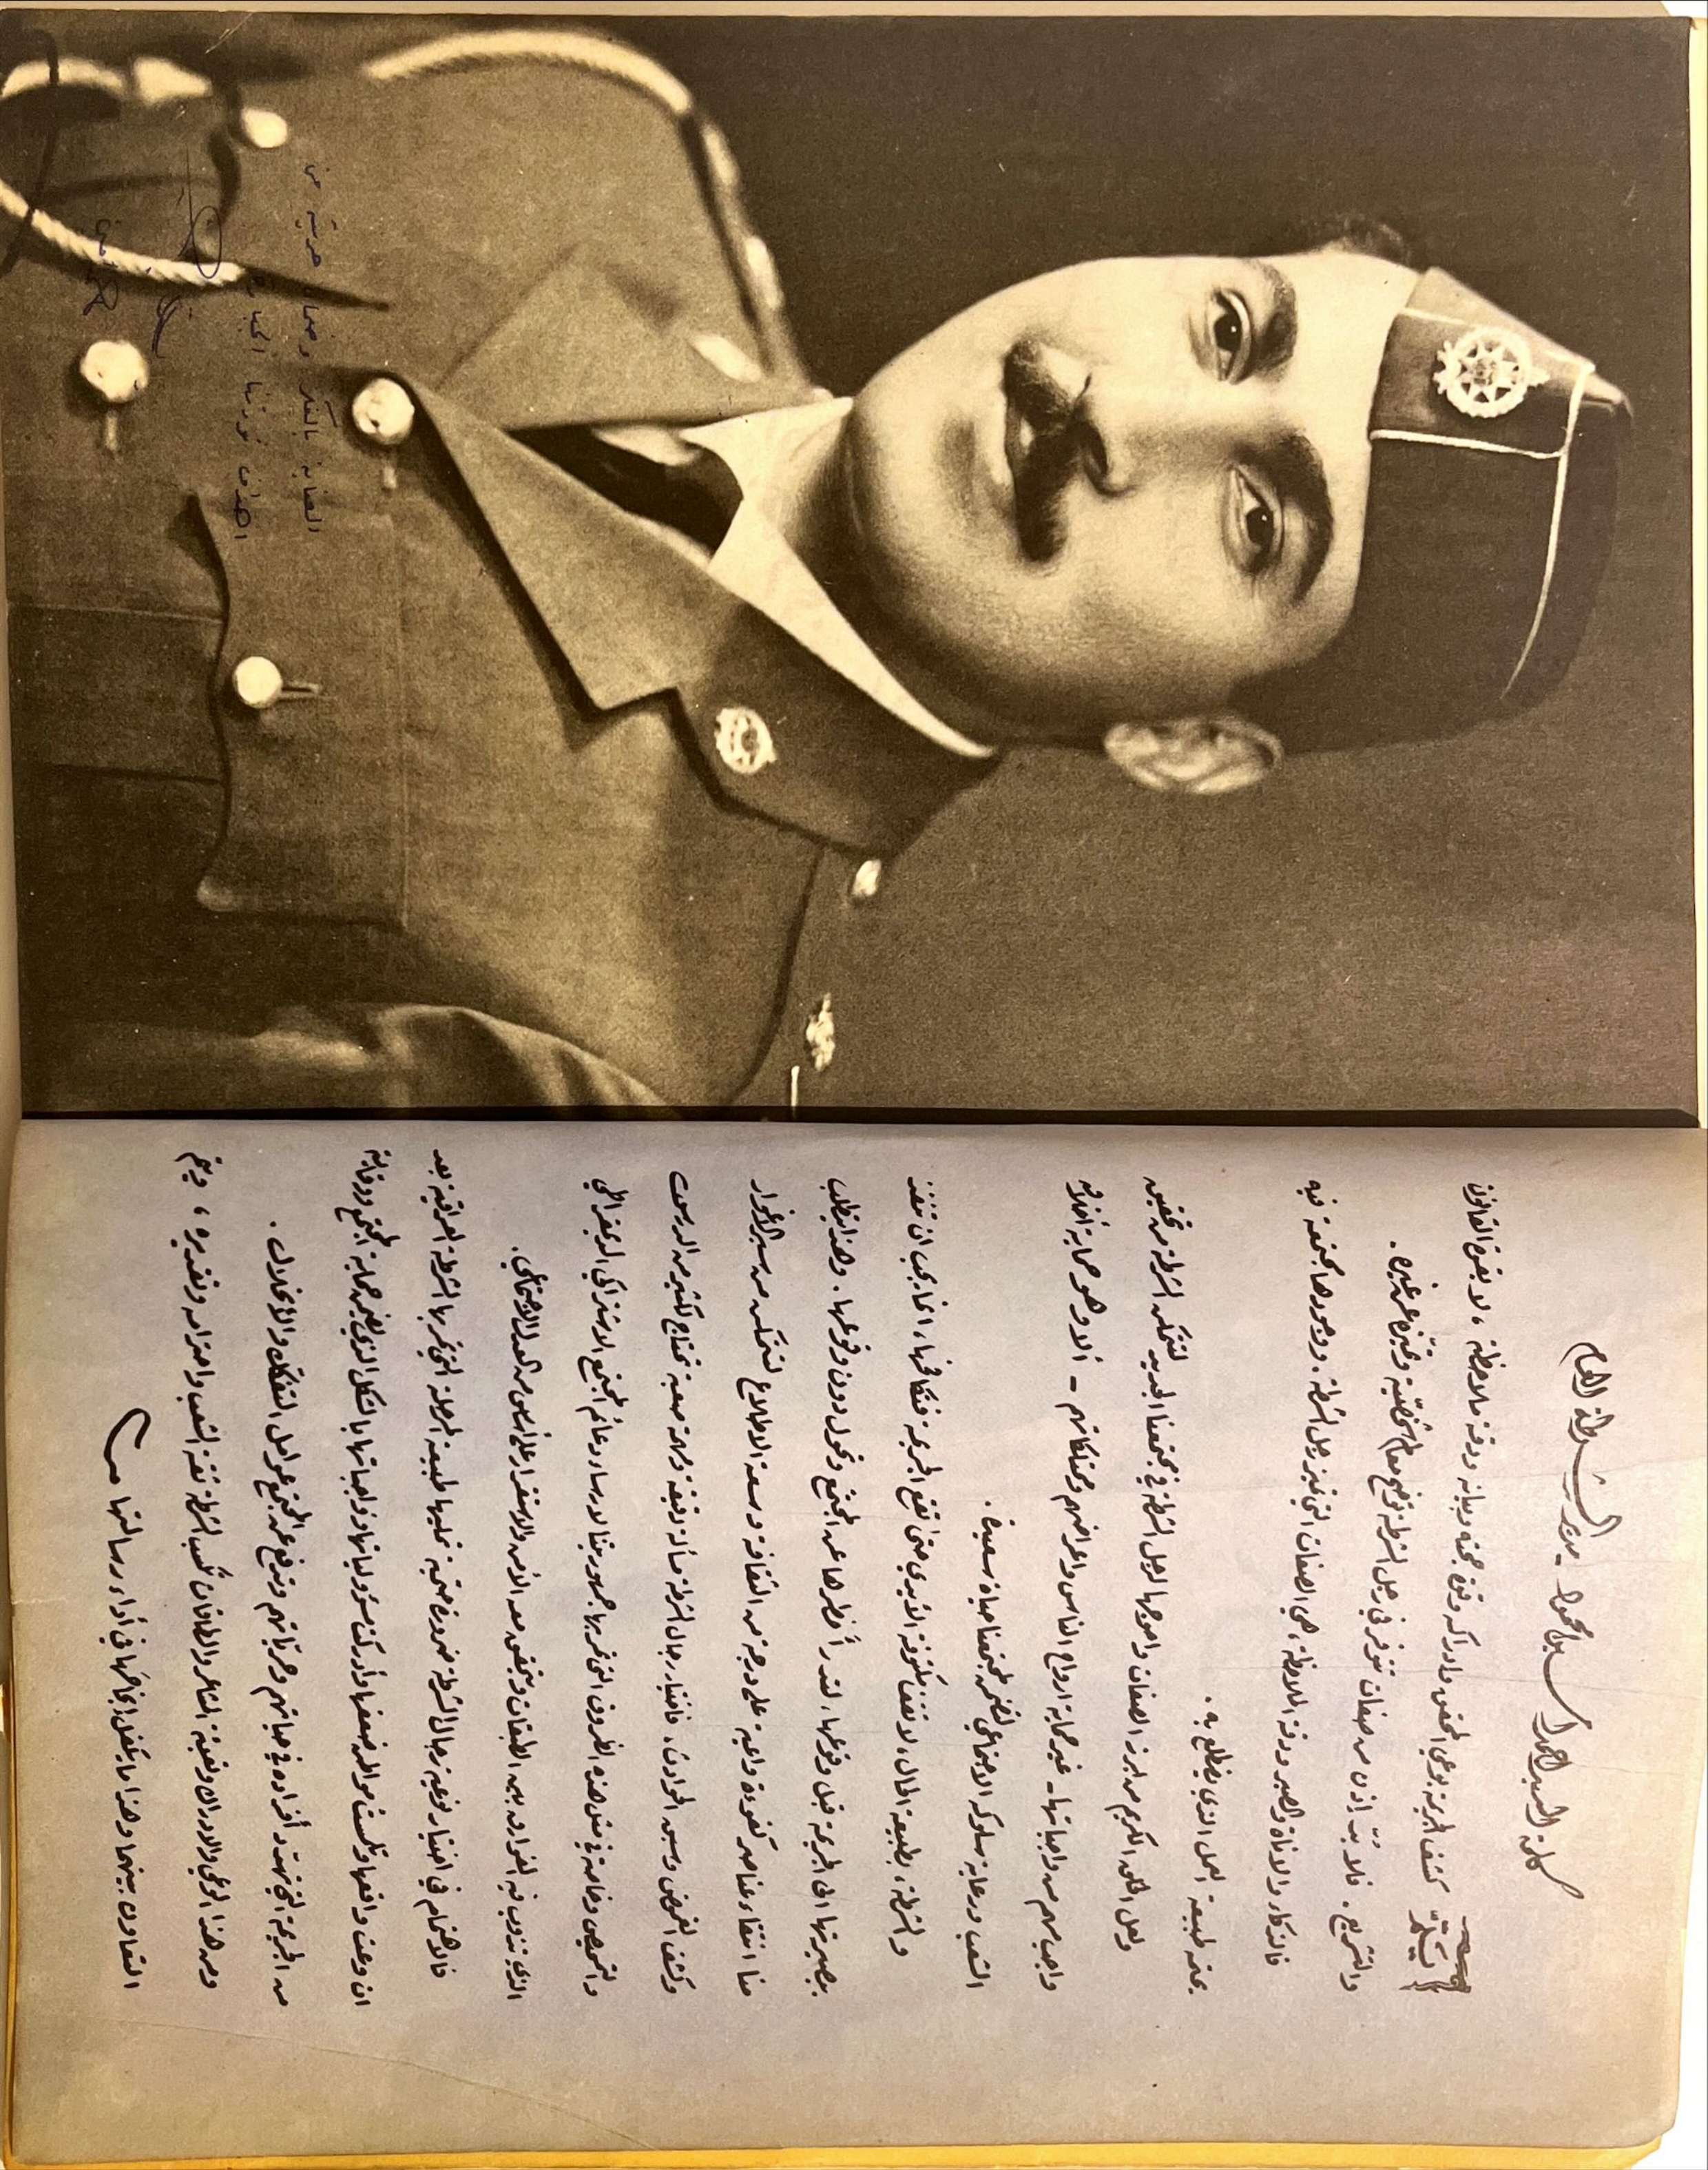 كلمة السيد احمد امين محمود - مدير الشرطة العام
يستلزم كشف الجريمة بوعي المحقق وادراكه وقوة حجته وبيانه ودقة ملاحظته ، لا بقوة القانون
والتشريع . فلا بدّ إذن من صفات تتوفر في رجل الشرطة توضح معالم شخصيّته وتميّزه عن غيره .
فالذكاء والاناة والصبر ودقة الملاحظة ، هي الصفات التي تميز رجل الشرطة . ووجودها مجتمعة فيه
يحتمه طبيعة العمل الذي يضطلع به .
ولعل الخلق الكريم من ابرز الصفات واوجبها لرجل الشرطة في مجتمعنا الجديد لتتمكن الشرطة من تحقيق
واجب مهم من واجباتها - غير حماية ارواح الناس واعراضهم وممتلكاتهم - ألا وهو حماية أخلاق
الشعب ورعاية سلوكه الاجتماعي لنضمن لمجتمعنا حياة سعيدة .
والشرطة ، بطبيعة الحال ، لا تقف مكتوفة الأيدي حتى تقع الجريمة فتكافحها ، انما يجب ان تنفذ
ببصيرتها الى الجريمة قبل وقوعها ، لتدرأ خطرها عن المجتمع وتحول دون وقوعها . وهذا يتطلب
منا انتقاء عناصر كفوءة واعية على درجة من الثقافة وسعة الاطلاع لتتمكن من سبر الاغوار
وكشف الغموض وسبب الحوادث . فاختيار رجال الشرطة مسألة دقيقة ومهمة صعبة تحتاج لكثير من الدرس
والتمحيص وخاصة في مثل هذه الظروف التي تمر بها جمهوريتنا لارساء دعائم المجتمع الاشتراكي الديمقراطي
الذي تذوب فيه الفوارق بين الطبقات ويتحقق معه الأمن والاستقرار على أسس من العدل الاجتماعي .
فالاهتمام في اختيار نوعية رجال الشرطة ضرورة حتمية تمليها طبيعة المرحلة التي تمر بها الشرطة العراقية بعد
ان وعت واقعها وتلمست مواطن ضعفها وأدركت مسؤولياتها وواجباتها بالشكل الذي يضمن حماية المجتمع ووقايته
من الجريمة التي تهدد أفراده في حياتهم وحرياتهم وترفع عن المجتمع عوامل التفكك والانحلال .
ومن هذا الوعي والادراك وتعبئة المشاعر والطاقات تكسب الشرطة ثقة الشعب واحترامه وتقديره ، ويتم
التعاون بينهما وهذا ما يكفل نجاحها في أداء رسالتها
العناية بالفكر وضمان حريته من
اهداف ثورتنا